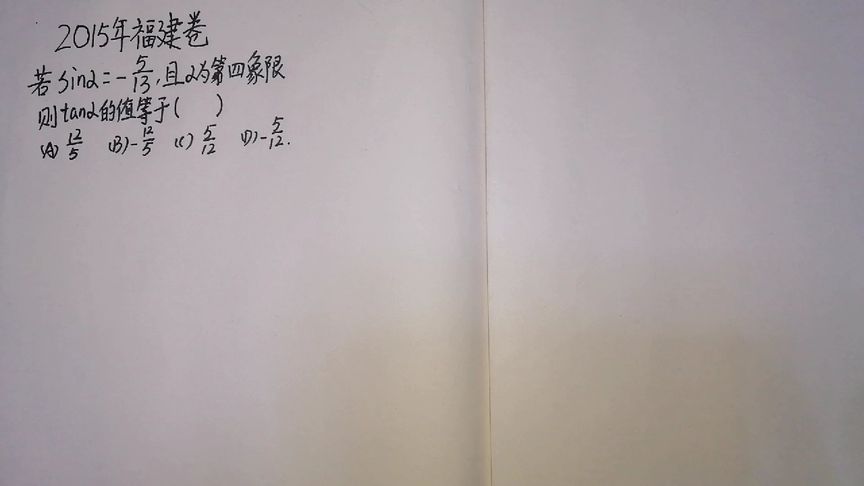 2015年福建卷
若sinα=-5/13,且α为第四象限
则tanα的值等于(  )
(A) 12/5 (B)-12/5 (C) 5/12 (D)-5/12.